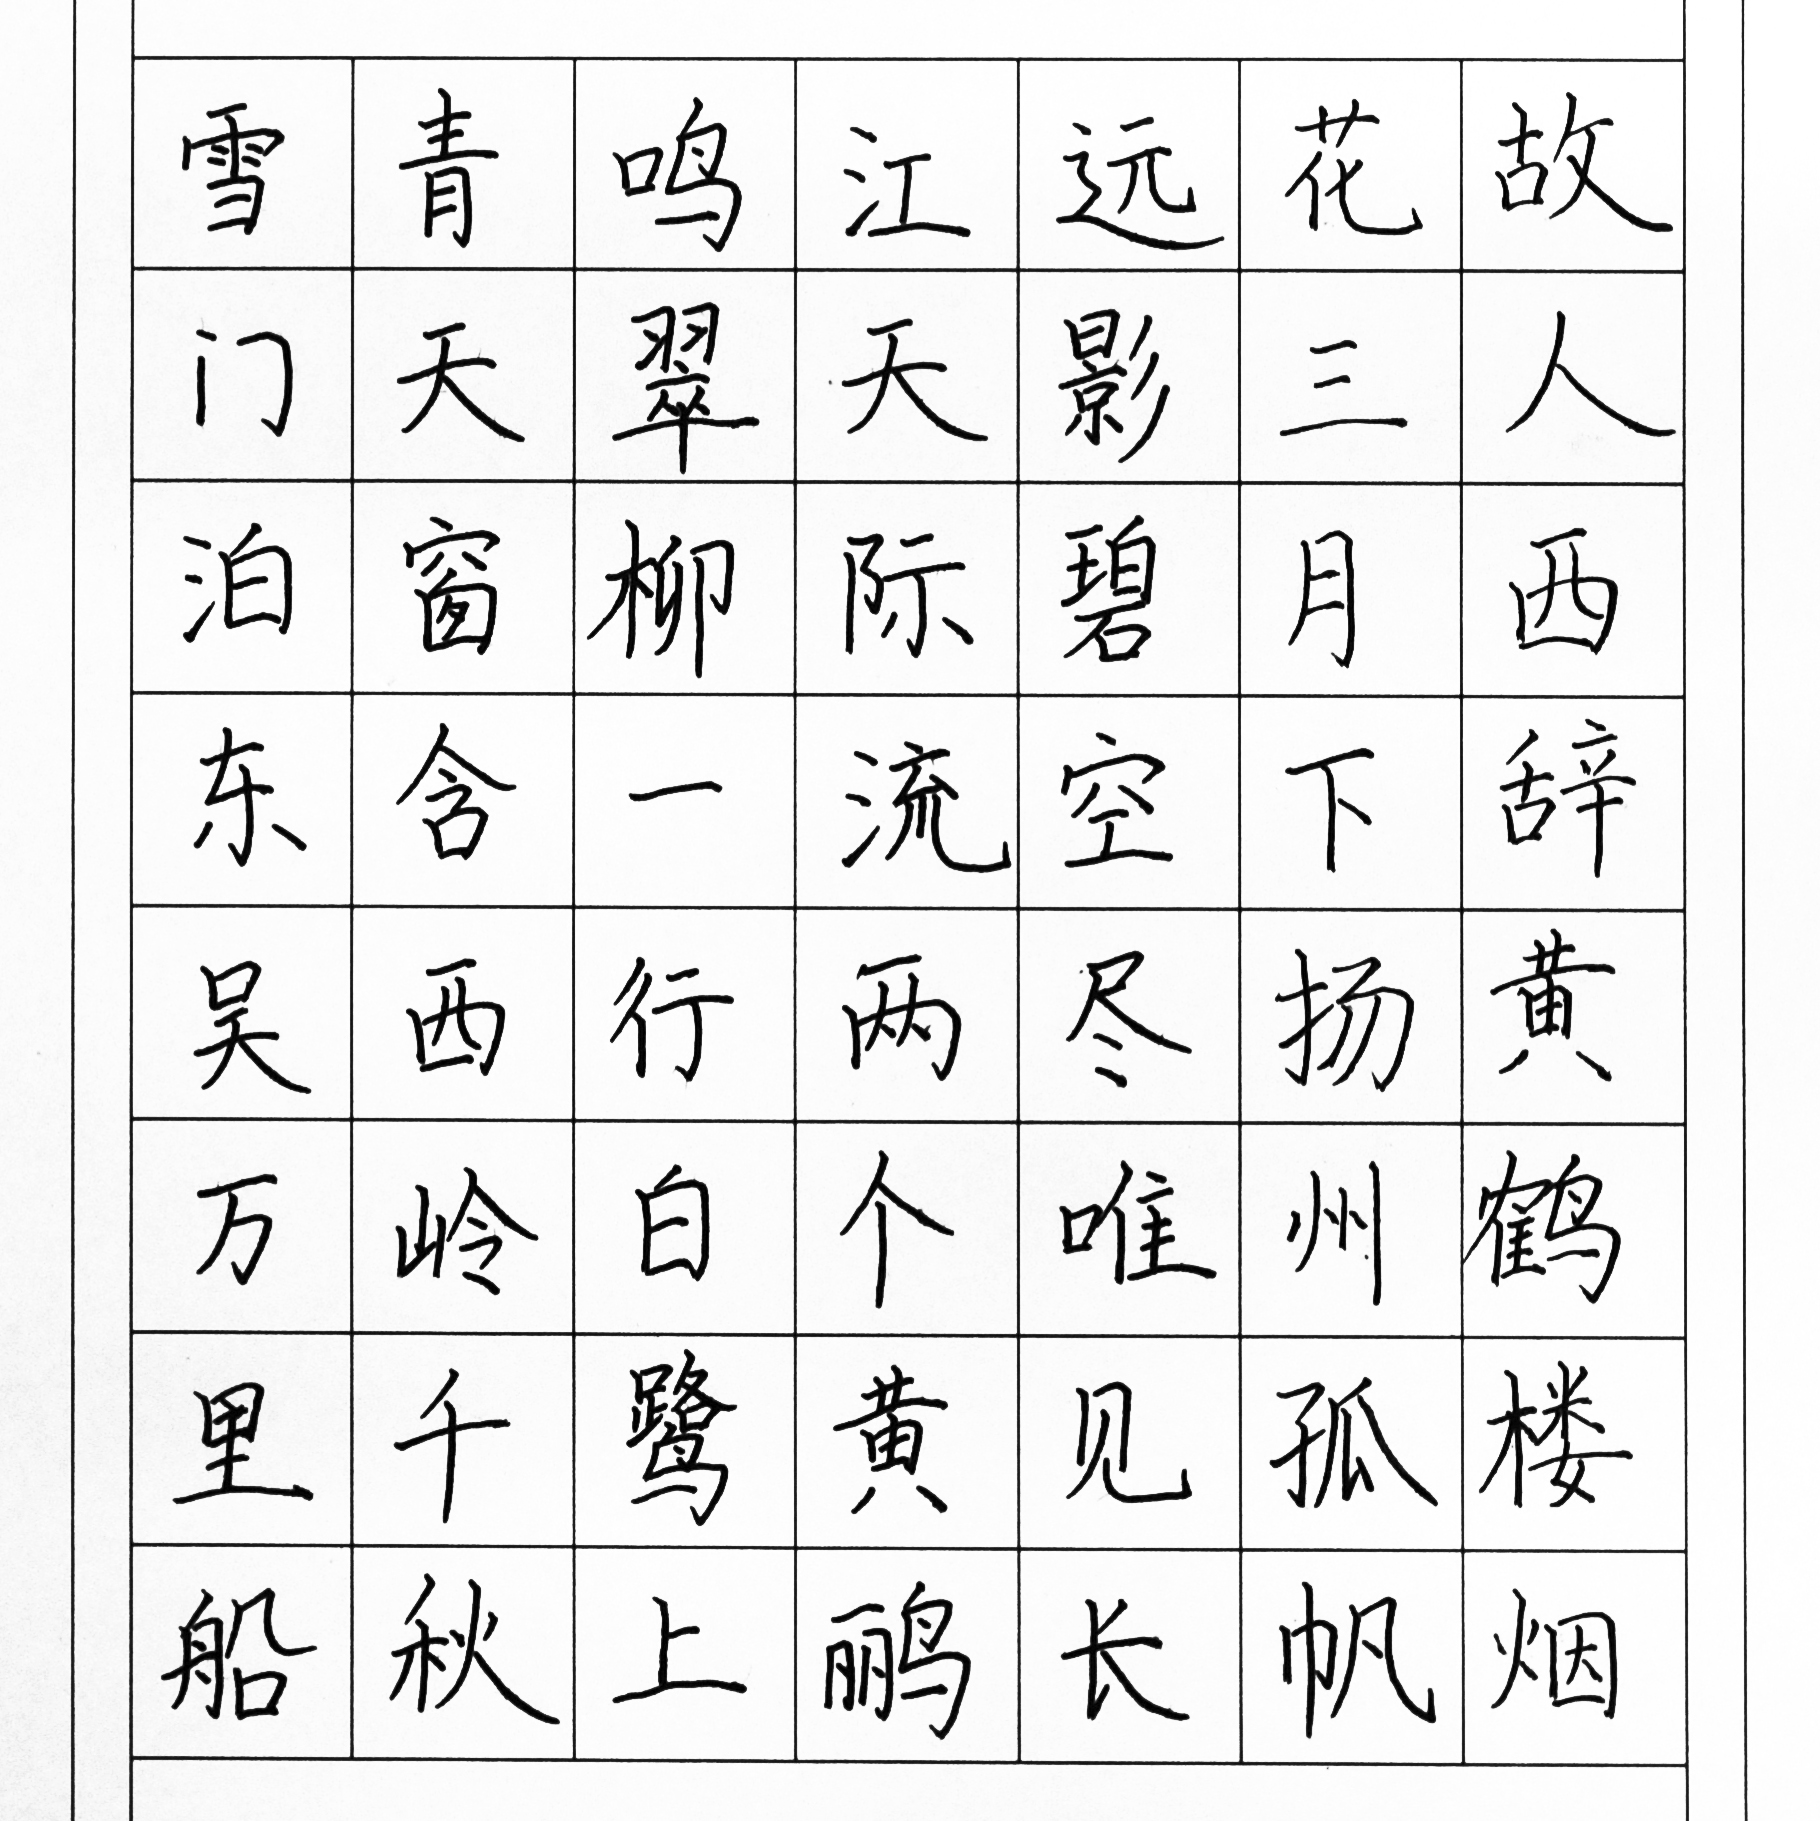 故人西辞黄鹤楼烟
花三月下扬州孤帆
远影碧空尽唯见长
江天际流两个黄鹂
鸣翠柳一行白鹭上
青天窗含西岭千秋
雪门泊东吴万里船